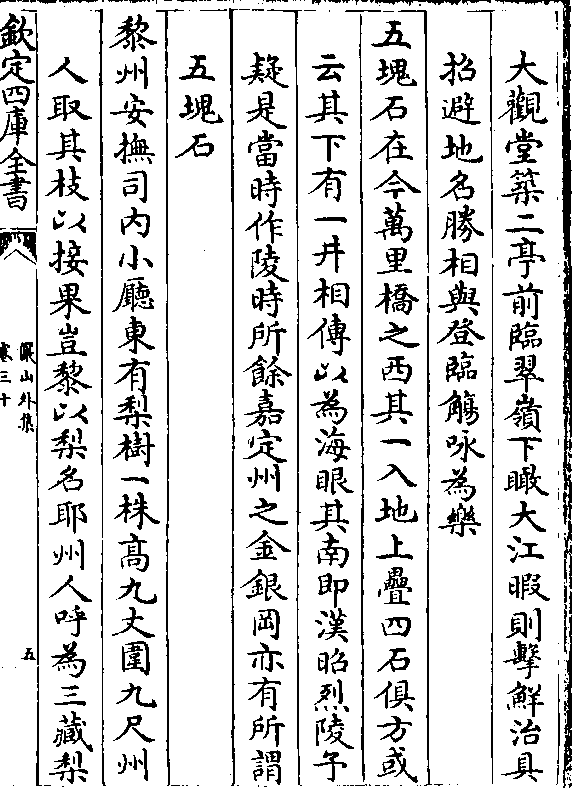 大觀堂築二亭前臨翠嶺下瞰大江暇則擊鮮治具
招避地名勝相與登臨觴咏為樂
五塊石在今萬里橋之西其一入地上疊四石俱方或
云其下有一井相傳以為海眼其南即漢昭烈陵予
疑是當時作陵時所餘嘉定州之金銀岡亦有所謂
五塊石
黎州安撫司內小廳東有梨樹一株高九丈圍九尺州
人取其枝以接果豈黎以梨名耶州人呼為三藏梨
欽定四庫全書
山外集
卷三十
五